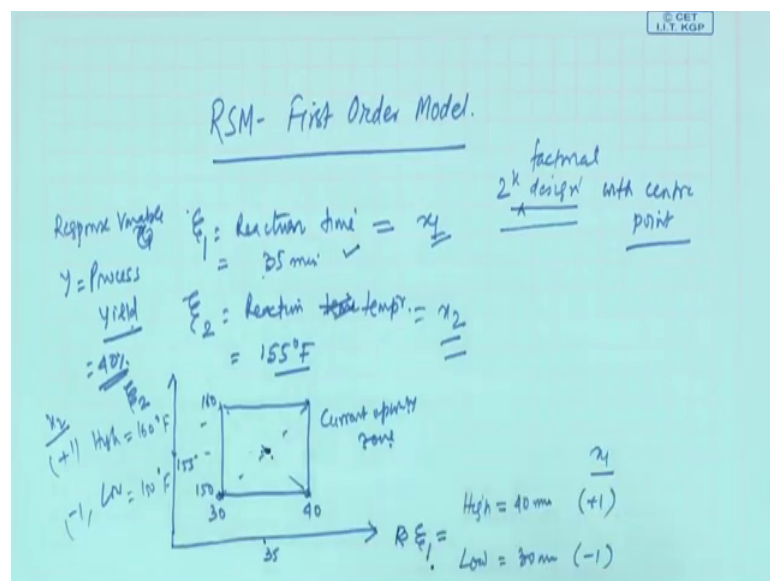 © CET
I.I.T. KGP
RSM- First Order Model.
2^k factorial design with centre point
Response Variable
y = Process
yield
= 40%
ξ1 : Reaction time = x1
= 35 min ✓
ξ2 : Reaction temp. = x2
= 155°F
ξ2
x2
(+1) High = 160°F
(-1, Low = 150°F
160
155°
150
30
40
35
Current operating
zone
ξ1 =
x1
High = 40 min (+1)
Low = 30 min (-1)